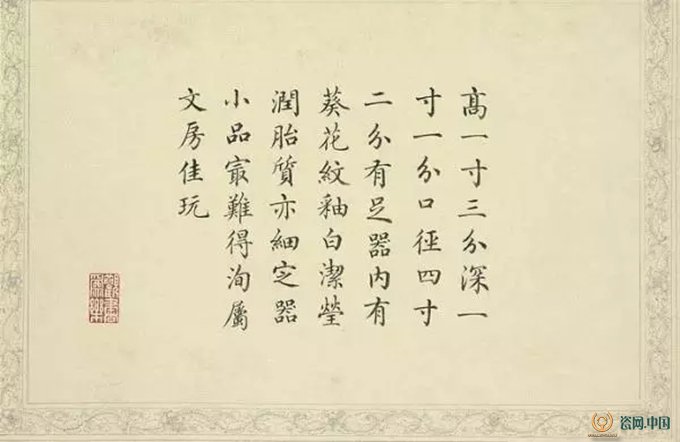 高一寸三分深一
寸一分口徑四寸
二分有足器內有
葵花紋釉白潔瑩
潤胎質亦細定器
小品㝡難得洵屬
文房佳玩
瓷网.中国